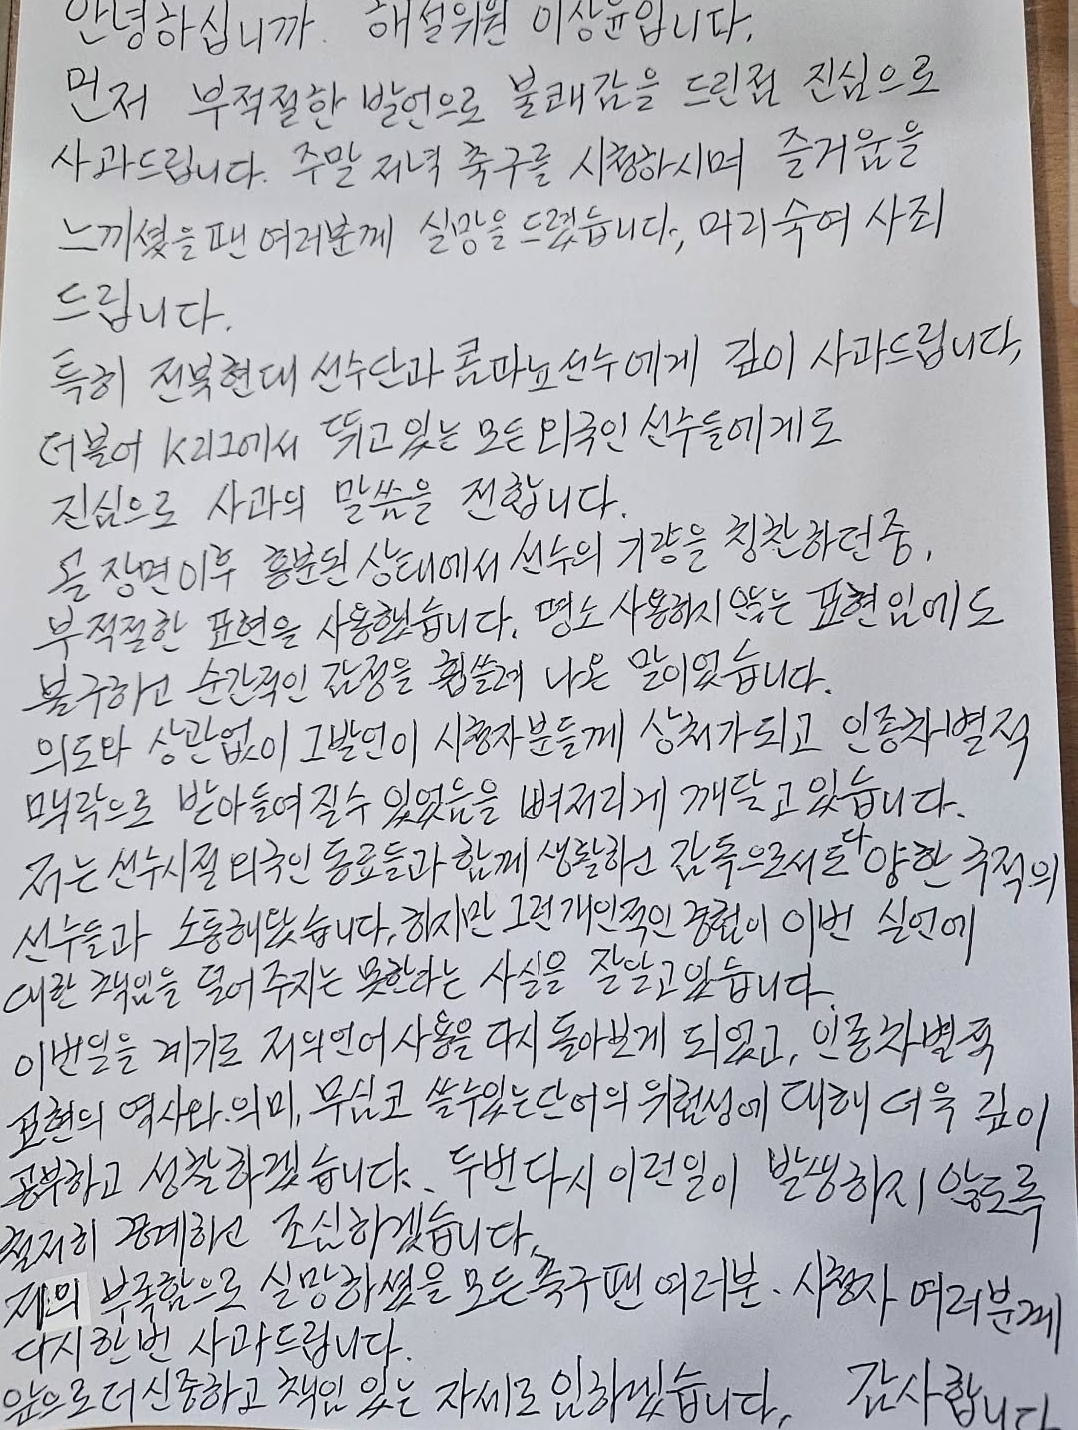 안녕하십니까. 해설위원 이상윤입니다.
먼저 부적절한 발언으로 불쾌감을 드린점 진심으로
사과드립니다. 주말 저녁 축구를 시청하시며 즐거움을
느끼셨을 팬 여러분께 실망을 드렸습니다, 머리숙여 사죄
드립니다.
특히 전북현대 선수단과 콤파뇨선수에게 깊이 사과드립니다,
더불어 K리그에서 뛰고있는 모든 외국인 선수들에게도
진심으로 사과의 말씀을 전합니다.
골 장면이후 흥분된 상태에서 선수의 기량을 칭찬하던중,
부적절한 표현을 사용했습니다. 평소 사용하지 않는 표현임에도
불구하고 순간적인 감정을 휩쓸려 나온 말이었습니다.
의도와 상관없이 그발언이 시청자분들께 상처가되고 인종차별적
맥락으로 받아들여질수 있었음을 뼈저리게 깨닫고있습니다.
저는 선수시절 외국인 동료들과 함께 생활하고 감독으로서도 다양한 국적의
선수들과 소통해왔습니다. 하지만 그런개인적인 경험이 이번 실언에
대한 책임을 덜어주지는 못한다는 사실을 잘알고있습니다.
이번일을 계기로 저의언어사용을 다시 돌아보게 되었고, 인종차별적
표현의 역사와 의미, 무심코 쓸수있는단어의 위험성에 대해 더욱 깊이
공부하고 성찰하겠습니다. 두번다시 이런일이 발생하지 않도록
철저히 경계하고 조심하겠습니다,
저의 부족함으로 실망하셨을 모든축구팬 여러분. 시청자 여러분께
다시한번 사과드립니다.
앞으로더신중하고 책임 있는 자세로 임하겠습니다, 감사합니다